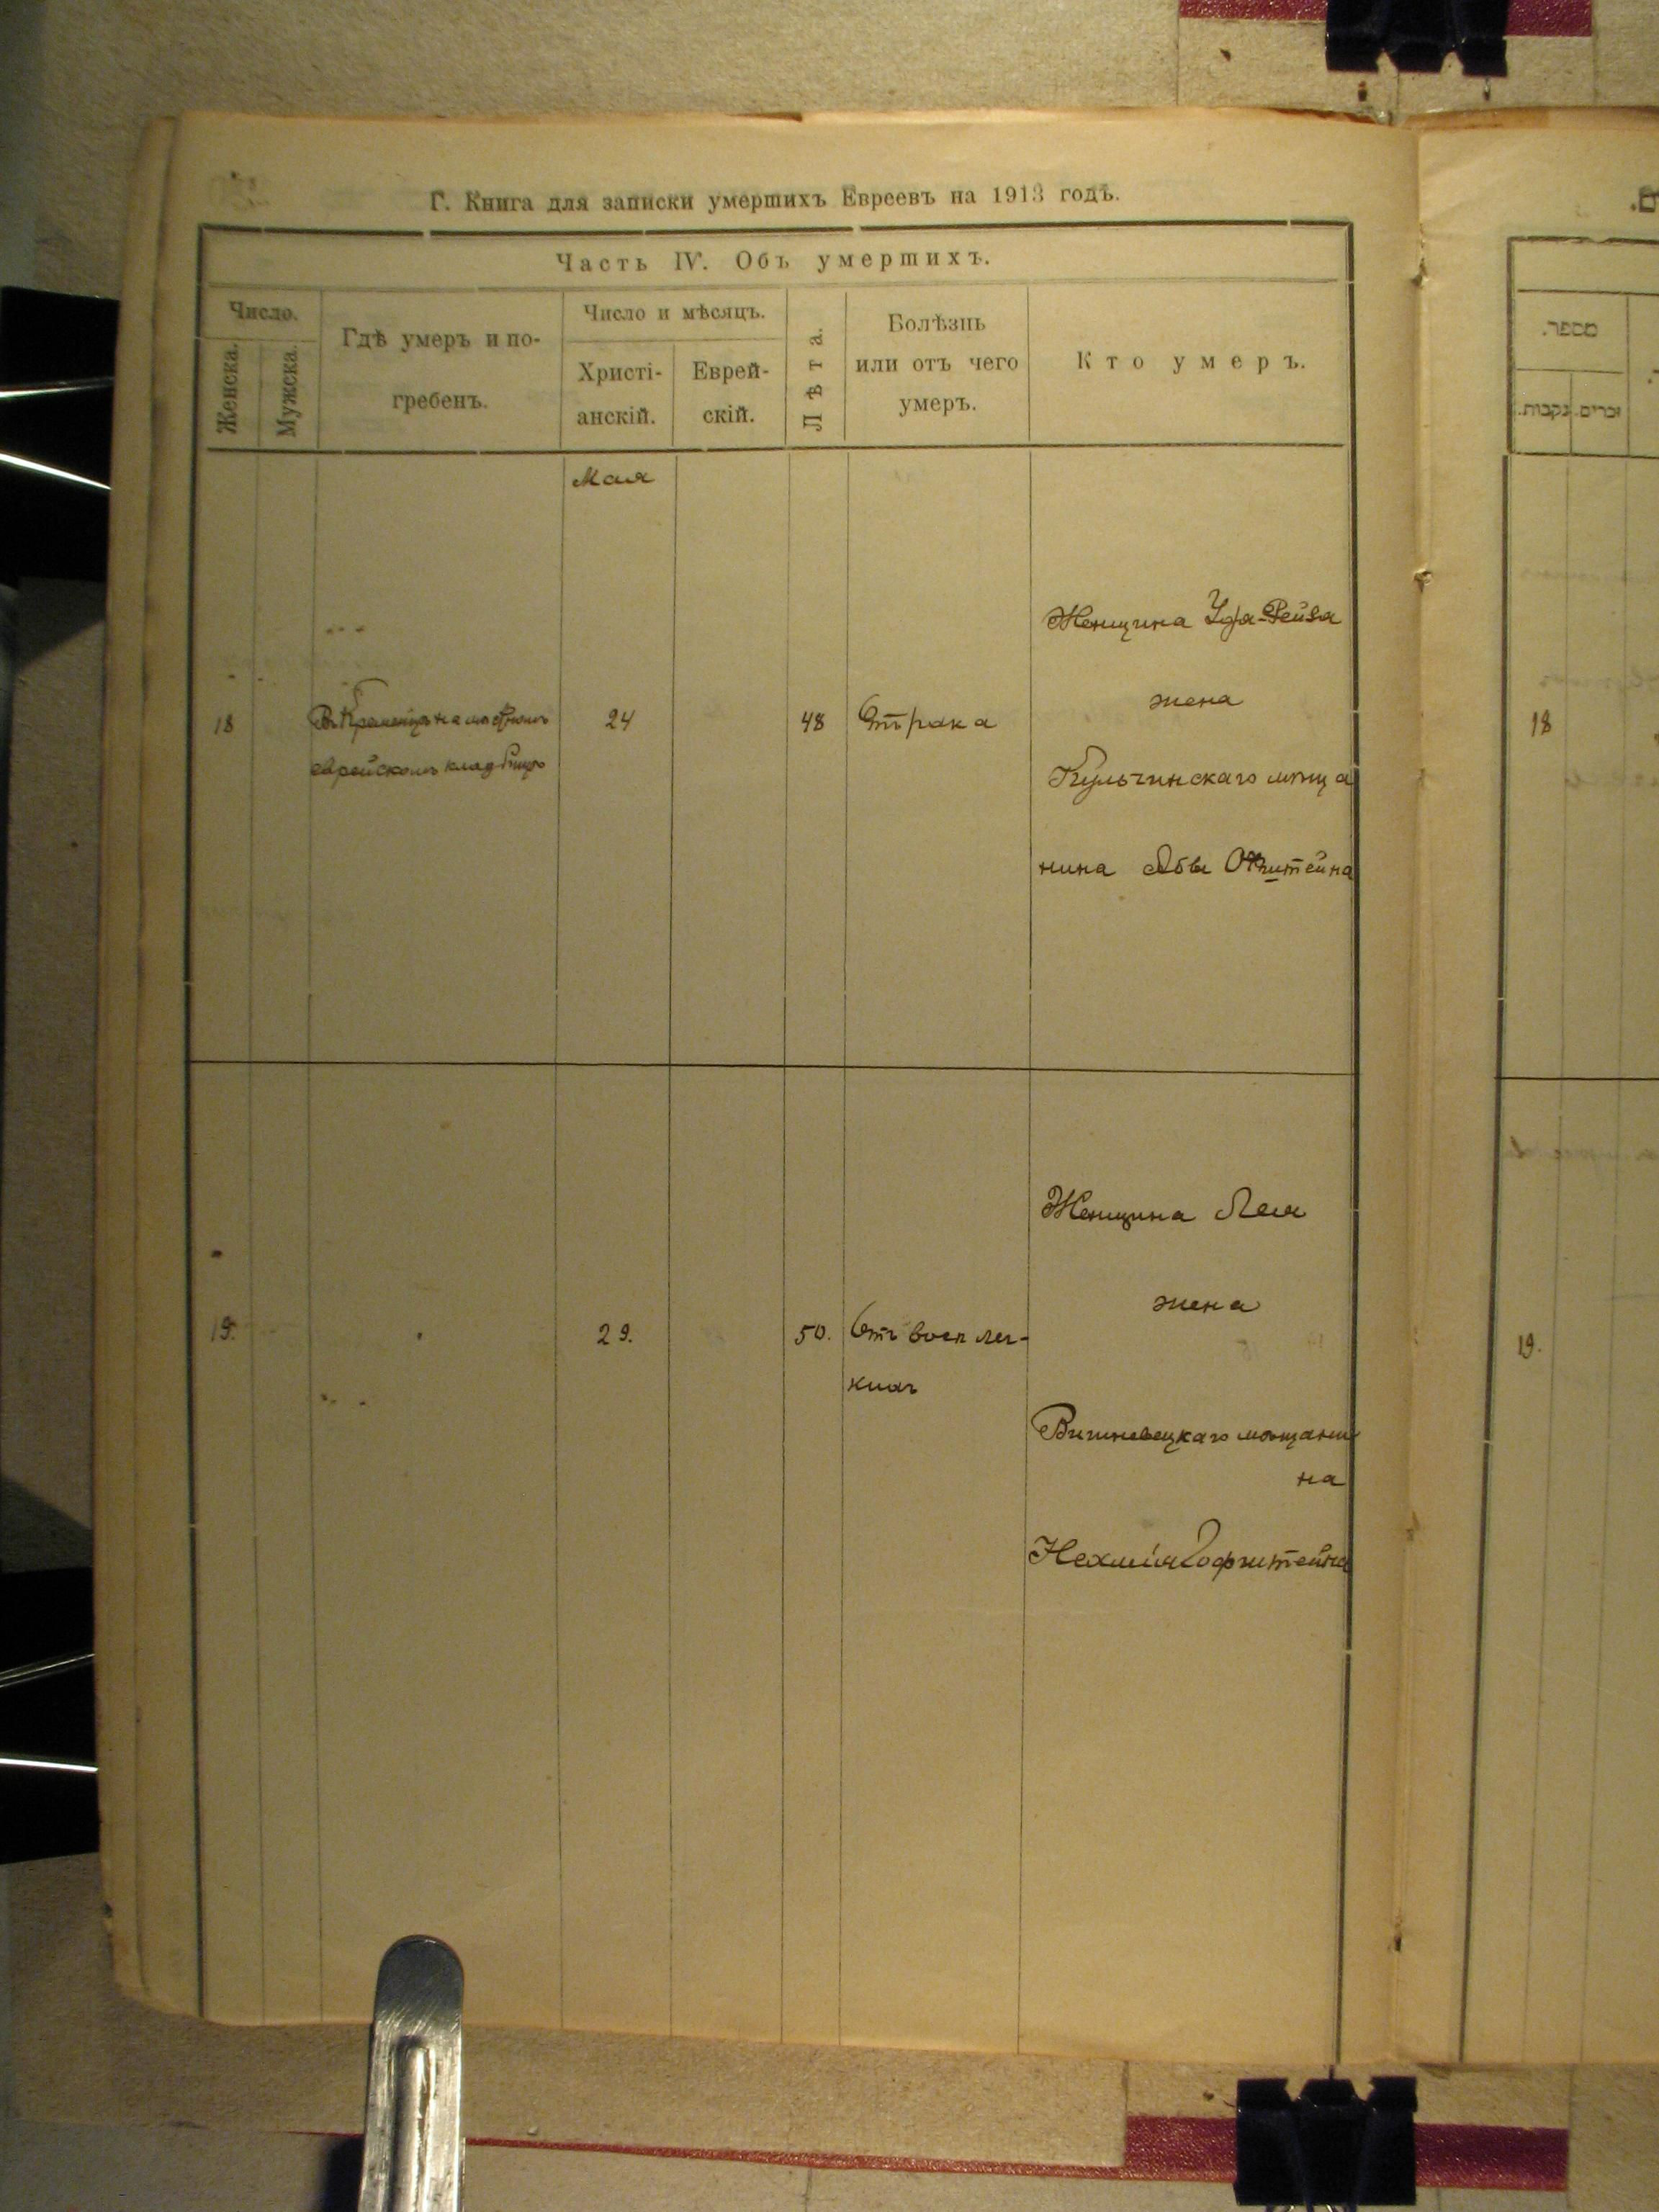 Г. Книга для записки умершихъ Евреевъ на 1913 годъ.
Часть IV. Объ умершихъ.
Число.
Женска.
Мужска.
Гдѣ умеръ и по-
гребенъ.
Число и мѣсяцъ.
Христі-
анскій.
Еврей-
скій.
Лѣта.
Болѣзнь
или отъ чего
умеръ.
Кто умеръ.
Мая
18
Въ Кременцѣ на мѣстномъ
еврейскомъ кладбищѣ
24
48
Отъ рака
Женщина Удя-Рейза
жена
Кульчинскаго мѣща
нина Абы
19.
29.
50.
Отъ восп лег-
кихъ
Женщина Лея
жена
Вишневецкаго мѣщани
на
Нехмія Гофштейна
מספר.
נקבות.
זכרים.
18
19.